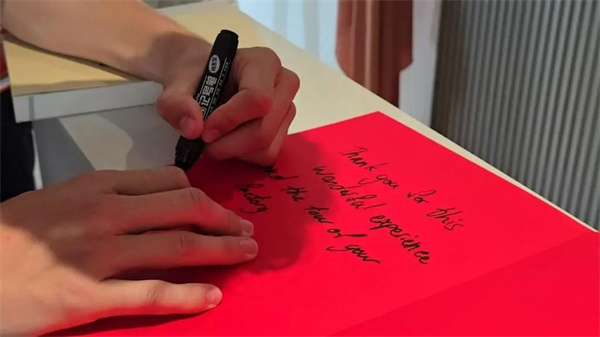 Thank you for this
wonderful experience
and the tour of your
factory
记号笔